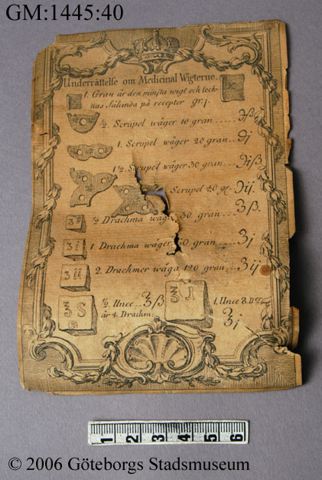 GM:1445:40
Underrättelse om Medicinal Wigterne.
1. Gran är den minsta wigt och teck-
nas sålunda på recepter gr.j.
½ Scrupel wäger 10 gran ... ℈ß
1. Scrupel wäger 20 gran ... ℈j
1½ Scrupel wäger 30 gran ... ℈jß
Scrupel 40 gr. ℈ij.
½ Drachma wäga 30 gran ... ʒß.
ʒß
1. Drachma wäger 60 gran ... ʒj
ʒi
2. Drachmer wäga 120 gran ... ʒij
ʒii
℥S ½ Unce ℥ß
är 4 Drachm.
℥J 1. Unce 8.
℥j
1 2 3 4 5 6
© 2006 Göteborgs Stadsmuseum